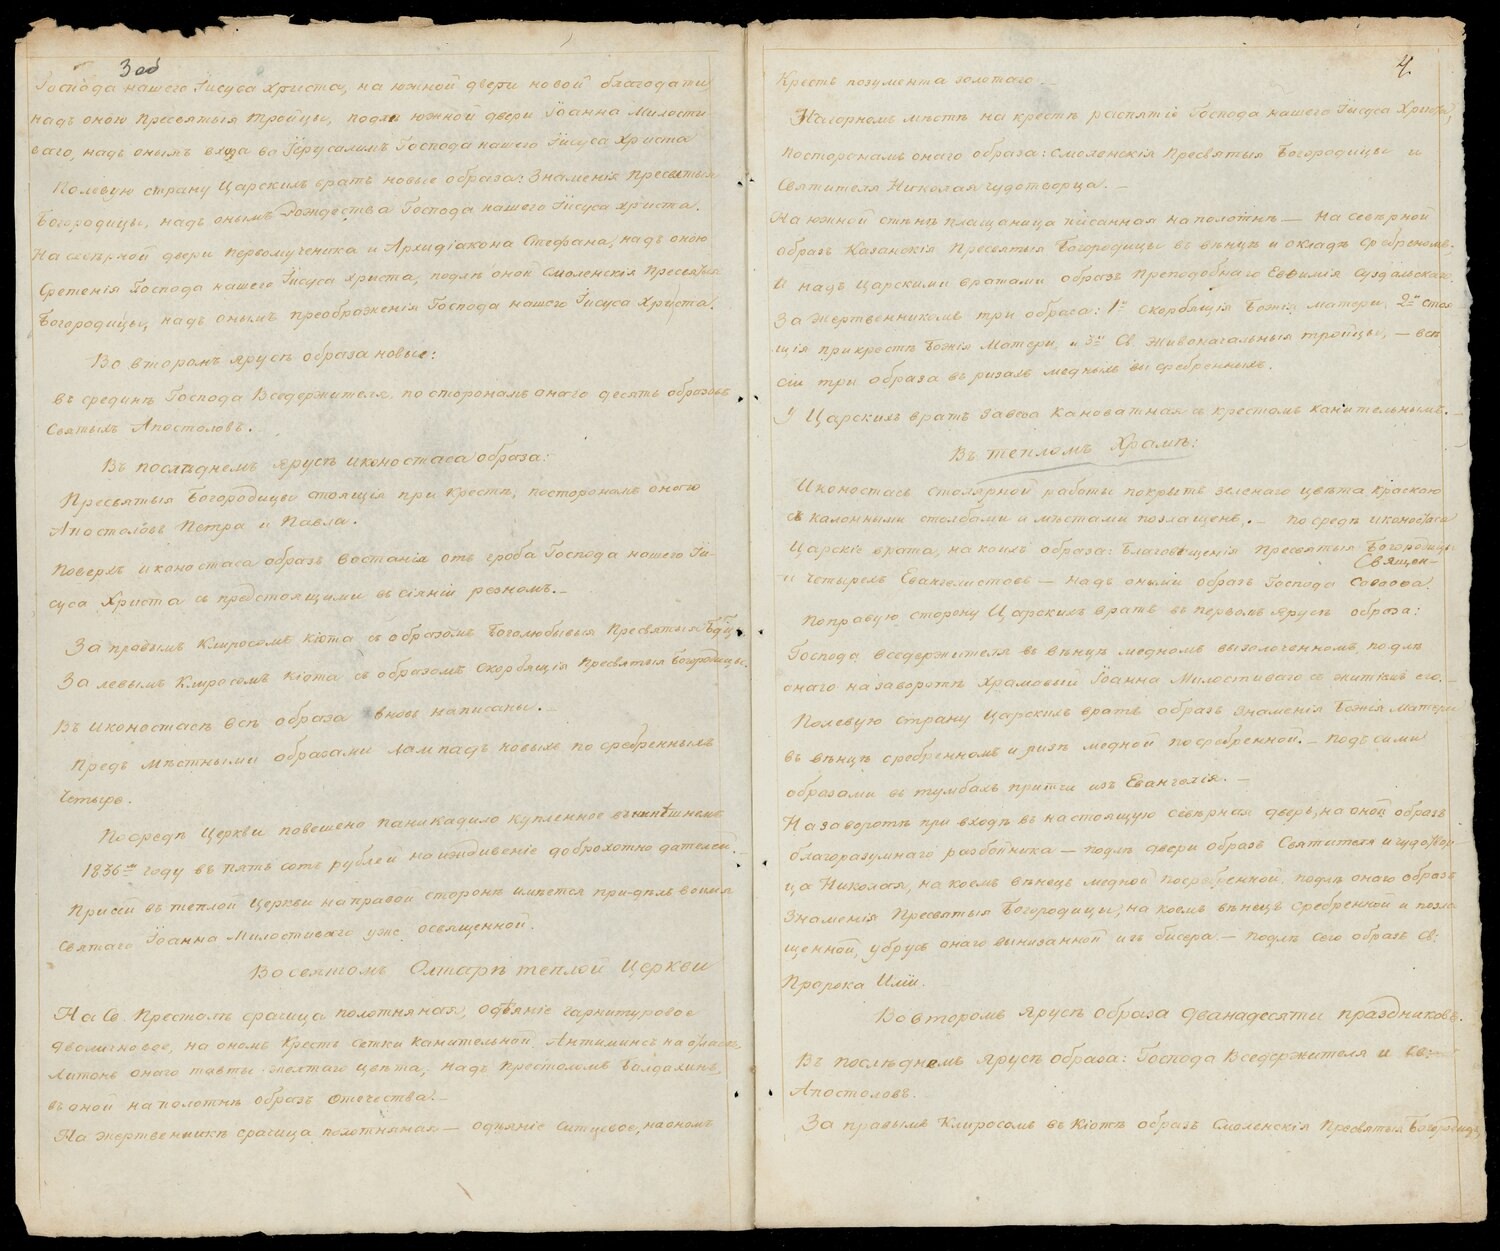 3 об
Господа нашего Іисуса Христа, на южной двери новой благодати
надъ оною Пресвятыя Тройцы, подли южной двери Іоанна Милости
ваго, надъ онымъ входа во Іерусалимъ Господа нашего Іисуса Христа
Полевую страну Царскихъ вратъ новые образа: Знаменія Пресвятыя
Богородицы, надъ онымъ Рождества Господа нашего Іисуса Христа.
На северной двери первомученика и Архидіакона Стефана, надъ оною
Сретенія Господа нашего Іисуса Христа, подлѣ оной Смоленскія Пресвятыя
Богородицы, надъ онымъ преображенія Господа нашего Іисуса Христа.
Во второмъ ярусѣ образа новые:
въ срединѣ Господа Вседержителя, по сторонамъ онаго десять образовъ
Святыхъ Апостоловъ.
Въ последнемъ ярусѣ иконостаса образа:
Пресвятыя Богородицы стоящія при крестѣ, посторонамъ онаго
Апостоловъ Петра и Павла.
Поверхъ иконостаса образъ востанія отъ гроба Господа нашего Іи-
суса Христа съ предстоящими въ сіяніи резномъ.
За правымъ Клиросомъ кіота съ образомъ Боголюбивыя Пресвятыя Бдцы.
За левымъ Клиросомъ кіота съ образомъ Скорбящія Пресвятыя Богородицы.
Въ иконостасѣ всѣ образа вновь написаны.
Предъ мѣстными образами лампадъ новыхъ посребренныхъ
Четыре.
Посредѣ Церкви повешено паникадило купленное въ нынѣшнемъ
1836м году въ пять сотъ рублей на иждивеніе доброхотно дателей.
Присей въ теплой Церкви на правой сторонѣ имѣется при-дѣлъ во имя
Святаго Іоанна Милостиваго уже освященной.
Во святомъ Олтарѣ теплой Церкви
На Св. Престолѣ срачица полотняная, одѣяніе гарнитуровое
дволичневое, на ономъ Крестъ сетки канительной. Антиминсъ на атласѣ,
Литонъ онаго тафты желтаго цвета, надъ престоломъ балдахинъ,
въ оной на полотнѣ образъ Отечества.
На жертвенникѣ срачица полотняная — одеяніе ситцевое, на ономъ
4.
Крестъ позумента золотаго —
Нагорномъ мѣстѣ на крестѣ распятіе Господа нашего Іисуса Христа,
посторонамъ онаго образа: Смоленскія Пресвятыя Богородицы и
Святителя Николая чудотворца. —
На южной стѣнѣ плащаница писанная на полотнѣ — На севѣрной
образъ Казанскія Пресвятыя Богородицы въ вѣнцѣ и окладѣ сребреномъ,
И надъ Царскими вратами образъ Преподобнаго Евфимія Суздальскаго.
За жертвенникомъ три образа: 1й Скорбящія Божія матери, 2й стоя
щія при крестѣ Божія Матери, и 3й Св. Живоначальныя тройцы, — всѣ
сіи три образа въ ризахъ медныхъ посребренныхъ.
У Царскихъ вратъ завеса кановатная съ крестомъ канительнымъ.
Въ тепломъ Храмѣ:
Иконостасъ столярной работы покрытъ зеленаго цвѣта краскою
съ калонными столбами и мѣстами позлащенъ. — посредѣ иконостаса
Царскіе врата, на коихъ образа: Благовещенія Пресвятыя Богородицы
и четырехъ Евангелистовъ — надъ оными образъ Господа Саваофа
Священ-
Поправую сторону Царскихъ вратъ въ первомъ ярусѣ образа:
Господа вседержителя въ вѣнцѣ медномъ вызолоченномъ, подлѣ
онаго на заворотѣ Храмовый Іоанна Милостиваго съ житіемъ его.
Полевую страну Царскихъ вратъ образъ Знаменія Божія Матери
въ вѣнцѣ сребренномъ и ризѣ медной посребренной. — Подъ сими
образами въ тумбахъ притчи изъ Евангелія. —
На заворотѣ при входѣ въ настоящую севѣрная дверь, на оной образъ
благоразумнаго разбойника — подлѣ двери образъ Святителя и чудотвор-
ца Николая, на коемъ вѣнецъ медной посребренной, подлѣ онаго образъ
Знаменія Пресвятыя Богородицы, на коемъ вѣнецъ сребренной и позла
щенной, убрусъ онаго вынизанной изъ бисера — подлѣ сего образъ Св:
Пророка Иліи.
Во второмъ ярусѣ образа дванадесяти праздниковъ.
Въ послѣднемъ ярусѣ образа: Господа Вседержителя и Св:
Апостоловъ.
За правымъ Клиросомъ въ Кіотѣ образъ Смоленскія Пресвятыя Богородицы,